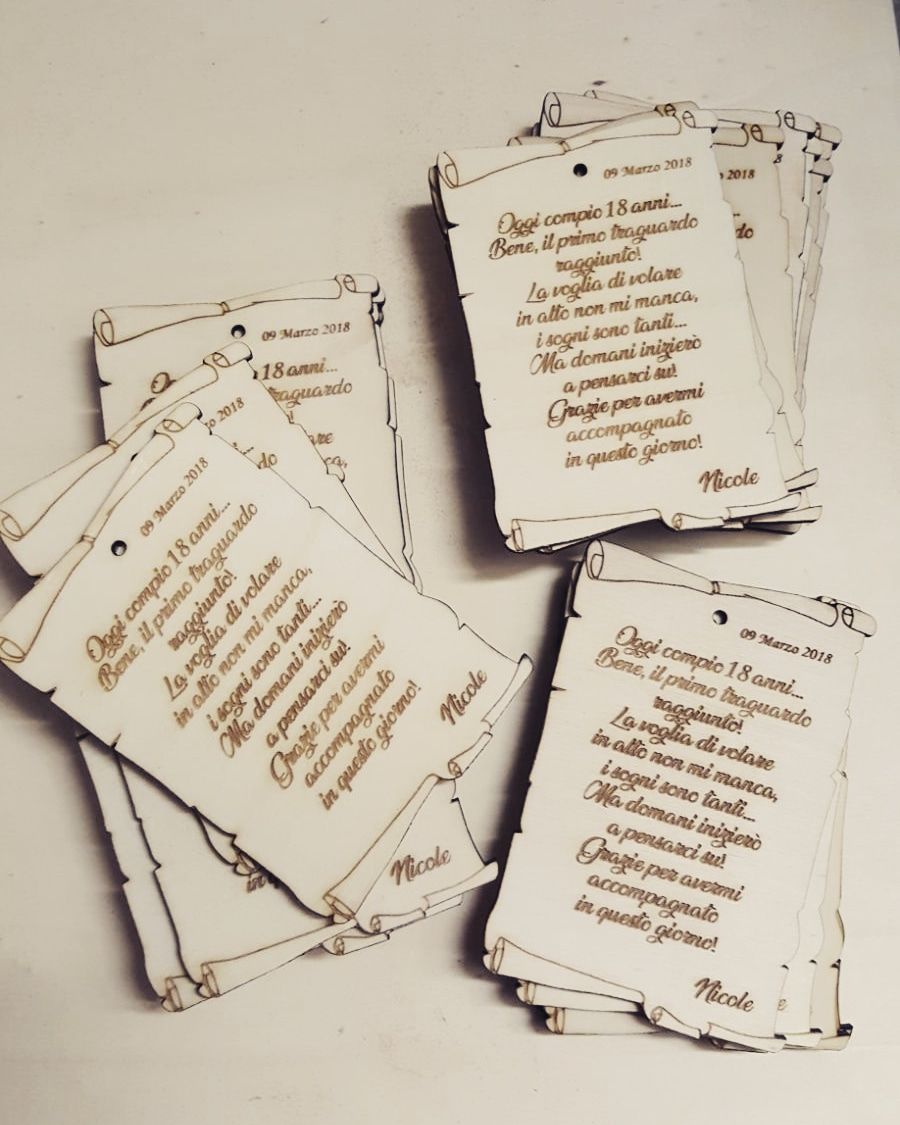 09 Marzo 2018
Oggi compio 18 anni...
Bene, il primo traguardo
raggiunto!
La voglia di volare
in alto non mi manca,
i sogni sono tanti...
Ma domani inizierò
a pensarci su!
Grazie per avermi
accompagnato
in questo giorno!
Nicole
2018
09 Marzo 2018
18 anni...
traguardo
2018
09 Marzo 2018
Oggi compio 18 anni...
Bene, il primo traguardo
raggiunto!
La voglia di volare
in alto non mi manca,
i sogni sono tanti...
Ma domani inizierò
a pensarci su!
Grazie per avermi
accompagnato
in questo giorno!
Nicole
Nicole
09 Marzo 2018
Oggi compio 18 anni...
Bene, il primo traguardo
raggiunto!
La voglia di volare
in alto non mi manca,
i sogni sono tanti...
Ma domani inizierò
a pensarci su!
Grazie per avermi
accompagnato
in questo giorno!
Nicole